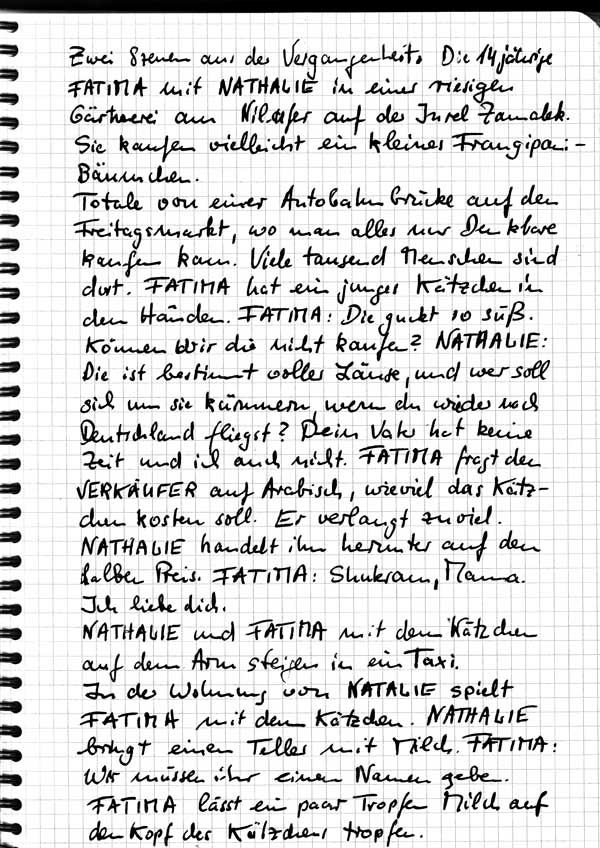 Zwei Szenen aus der Vergangenheit. Die 14jährige
FATIMA mit NATHALIE in einer riesigen
Gärtnerei am Nilufer auf der Insel Zamalek.
Sie kaufen vielleicht ein kleines Frangipani-
Bäumchen.
Totale von einer Autobahnbrücke auf den
Freitagsmarkt, wo man alles nur Denkbare
kaufen kann. Viele tausend Menschen sind
dort. FATIMA hat ein junges Kätzchen in
den Händen. FATIMA: Die guckt so süß.
Können wir die nicht kaufen? NATHALIE:
Die ist bestimmt voller Läuse, und wer soll
sich um sie kümmern, wenn du wieder nach
Deutschland fliegst? Dein Vater hat keine
Zeit und ich auch nicht. FATIMA fragt den
VERKÄUFER auf Arabisch, wieviel das Kätz-
chen kosten soll. Er verlangt zuviel.
NATHALIE handelt ihn herunter auf den
halben Preis. FATIMA: Shukram, Mama.
Ich liebe dich.
NATHALIE und FATIMA mit dem Kätzchen
auf dem Arm steigen in ein Taxi.
In der Wohnung von NATALIE spielt
FATIMA mit dem Kätzchen. NATHALIE
bringt einen Teller mit Milch. FATIMA:
Wir müssen ihr einen Namen geben.
FATIMA lässt ein paar Tropfen Milch auf
den Kopf des Kätzchens tropfen.